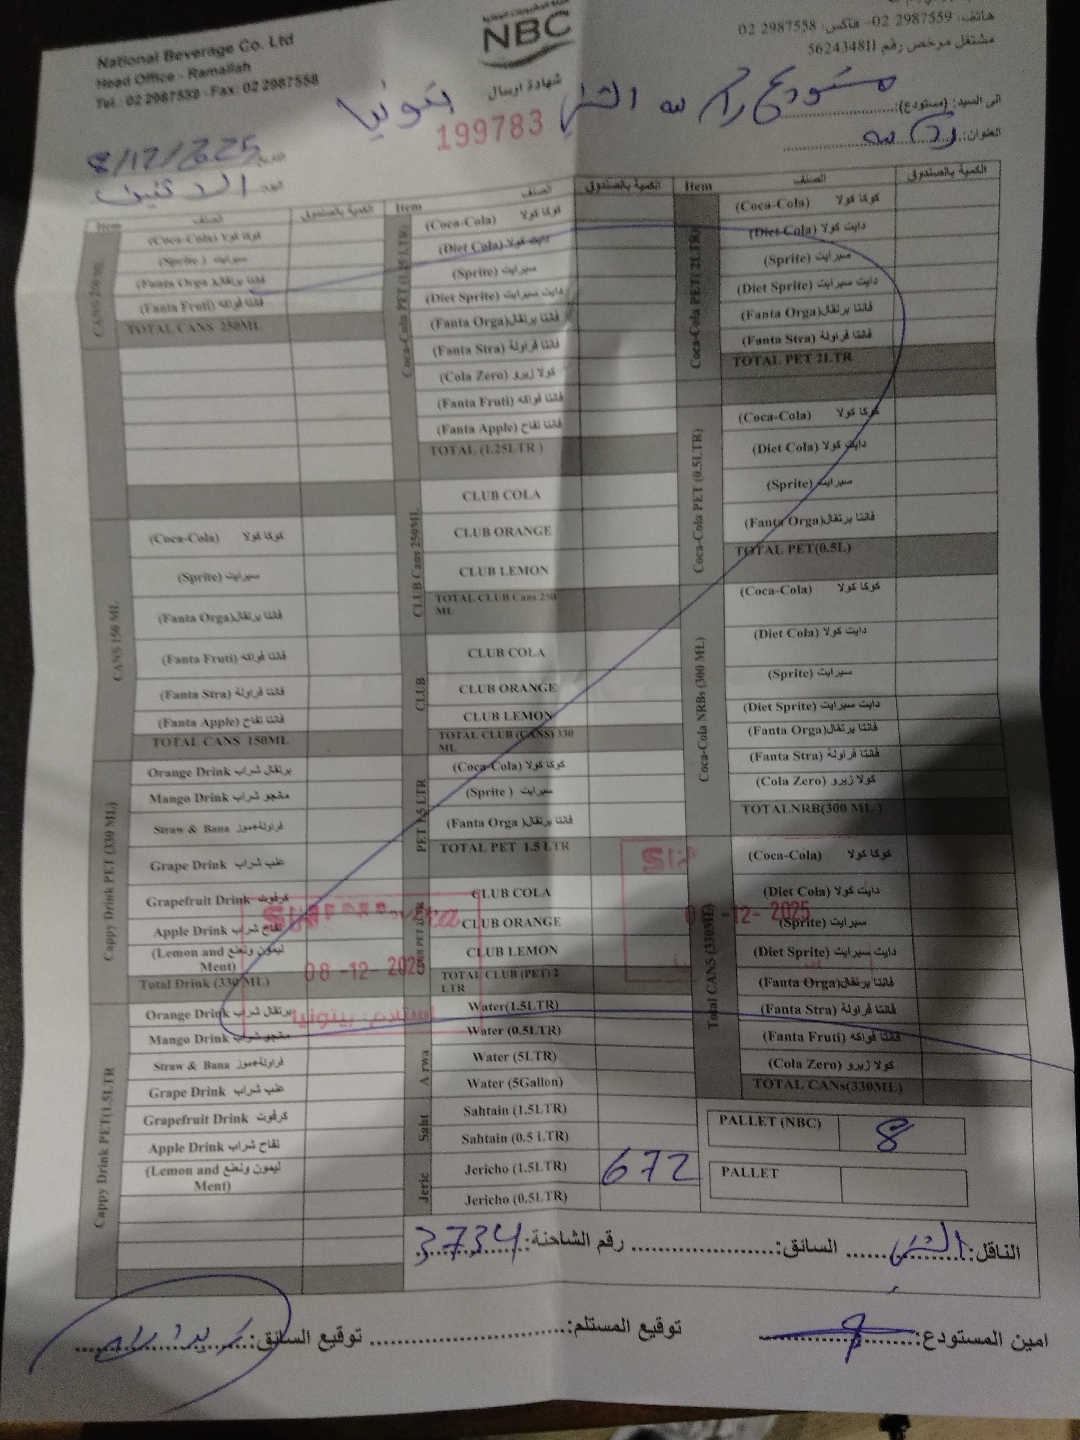 National Beverage Co. Ltd
Head Office - Ramallah
Tel.: 02 2987559 - Fax: 02 2987558
NBC
هاتف: 2987559 02- فاكس: 2987558 02
مشتغل مرخص رقم 562434811
شهادة ارسال
199783
الى السيد: (مستودع): مستودع رام الله
بيتونيا
العنوان: رام الله
التاريخ 8/12/2025
الاثنين
Item الصنف الكمية بالصندوق
CANS 250 ML
(Coca-Cola) كوكا كولا
(Sprite ) سبرايت
(Fanta Orga) فانتا برتقال
(Fanta Fruti) فانتا فواكه
TOTAL CANS 250ML
CANS 150 ML
(Coca-Cola) كوكا كولا
(Sprite) سبرايت
(Fanta Orga) فانتا برتقال
(Fanta Fruti) فانتا فواكه
(Fanta Stra) فانتا فراولة
(Fanta Apple) فانتا تفاح
TOTAL CANS 150ML
Cappy Drink PET (330 ML)
Orange Drink برتقال شراب
Mango Drink منجو شراب
Straw & Bana فراولة+موز
Grape Drink عنب شراب
Grapefruit Drink كرفوت
Apple Drink تفاح شراب
(Lemon and ليمون ونعنع
Ment)
Total Drink (330 ML)
Cappy Drink PET(1.5LTR
Orange Drink برتقال شراب
Mango Drink منجو شراب
Straw & Bana فراولة+موز
Grape Drink عنب شراب
Grapefruit Drink كرفوت
Apple Drink تفاح شراب
(Lemon and ليمون ونعنع
Ment)
Item الصنف الكمية بالصندوق
Coca-Cola PET (1.25 LTR)
(Coca-Cola) كوكا كولا
(Diet Cola) دايت كولا
(Sprite) سبرايت
(Diet Sprite) دايت سبرايت
(Fanta Orga) فانتا برتقال
(Fanta Stra) فانتا فراولة
(Cola Zero) كولا زيرو
(Fanta Fruti) فانتا فواكه
(Fanta Apple) فانتا تفاح
TOTAL (1.25LTR )
CLUB Cans 250ML
CLUB COLA
CLUB ORANGE
CLUB LEMON
TOTAL CLUB Cans 250
ML
CLUB
CLUB COLA
CLUB ORANGE
CLUB LEMON
TOTAL CLUB (CANS) 330
ML
PET 1.5 LTR
(Coca-Cola) كوكا كولا
(Sprite ) سبرايت
(Fanta Orga ) فانتا برتقال
TOTAL PET 1.5 LTR
CLUB COLA
CLUB ORANGE
CLUB LEMON
TOTAL CLUB (PET) 2
LTR
Arwa
Water(1.5LTR)
Water (0.5LTR)
Water (5LTR)
Water (5Gallon)
Saht
Sahtain (1.5LTR)
Sahtain (0.5 LTR)
Jeric
Jericho (1.5LTR) 672
Jericho (0.5LTR)
Item الصنف الكمية بالصندوق
Coca-Cola PET( 2LTR)
(Coca-Cola) كوكا كولا
(Diet Cola) دايت كولا
(Sprite) سبرايت
(Diet Sprite) دايت سبرايت
(Fanta Orga) فانتا برتقال
(Fanta Stra) فانتا فراولة
TOTAL PET 2LTR
Coca-Cola PET (0.5LTR)
(Coca-Cola) كوكا كولا
(Diet Cola) دايت كولا
(Sprite) سبرايت
(Fanta Orga) فانتا برتقال
TOTAL PET(0.5L)
Coca-Cola NRBs (300 ML)
(Coca-Cola) كوكا كولا
(Diet Cola) دايت كولا
(Sprite) سبرايت
(Diet Sprite) دايت سبرايت
(Fanta Orga) فانتا برتقال
(Fanta Stra) فانتا فراولة
(Cola Zero) كولا زيرو
TOTALNRB(300 ML )
Total CANS (330ML)
(Coca-Cola) كوكا كولا
(Diet Cola) دايت كولا
(Sprite) سبرايت
(Diet Sprite) دايت سبرايت
(Fanta Orga) فانتا برتقال
(Fanta Stra) فانتا فراولة
(Fanta Fruti) فانتا فواكه
(Cola Zero) كولا زيرو
TOTAL CANs(330ML)
PALLET (NBC) 8
PALLET
08 -12- 2025
استلام: بيتونيا
08 -12- 2025
الناقل: السائق: رقم الشاحنة: 3734
امين المستودع: توقيع المستلم: توقيع السائق: